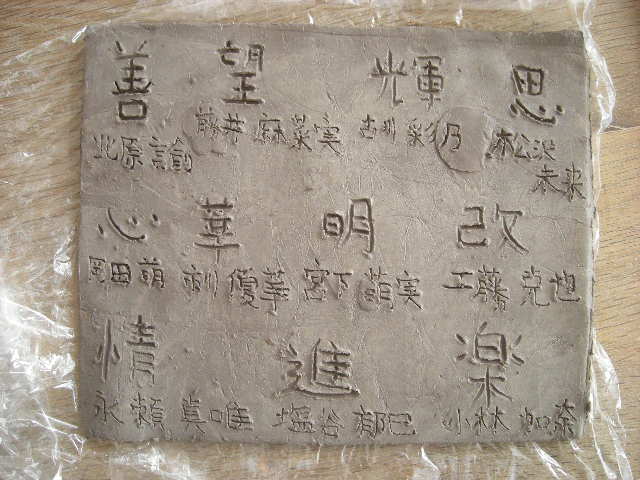 善 望 輝 思
北原 諭 藤井 麻菜実 吉川 彩乃 松沢 未来
心 華 明 改
岡田 萌 優華 宮下 萌実 工藤 克也
情 進 楽
永頼 真唯 塩谷 郁巳 小林 加奈